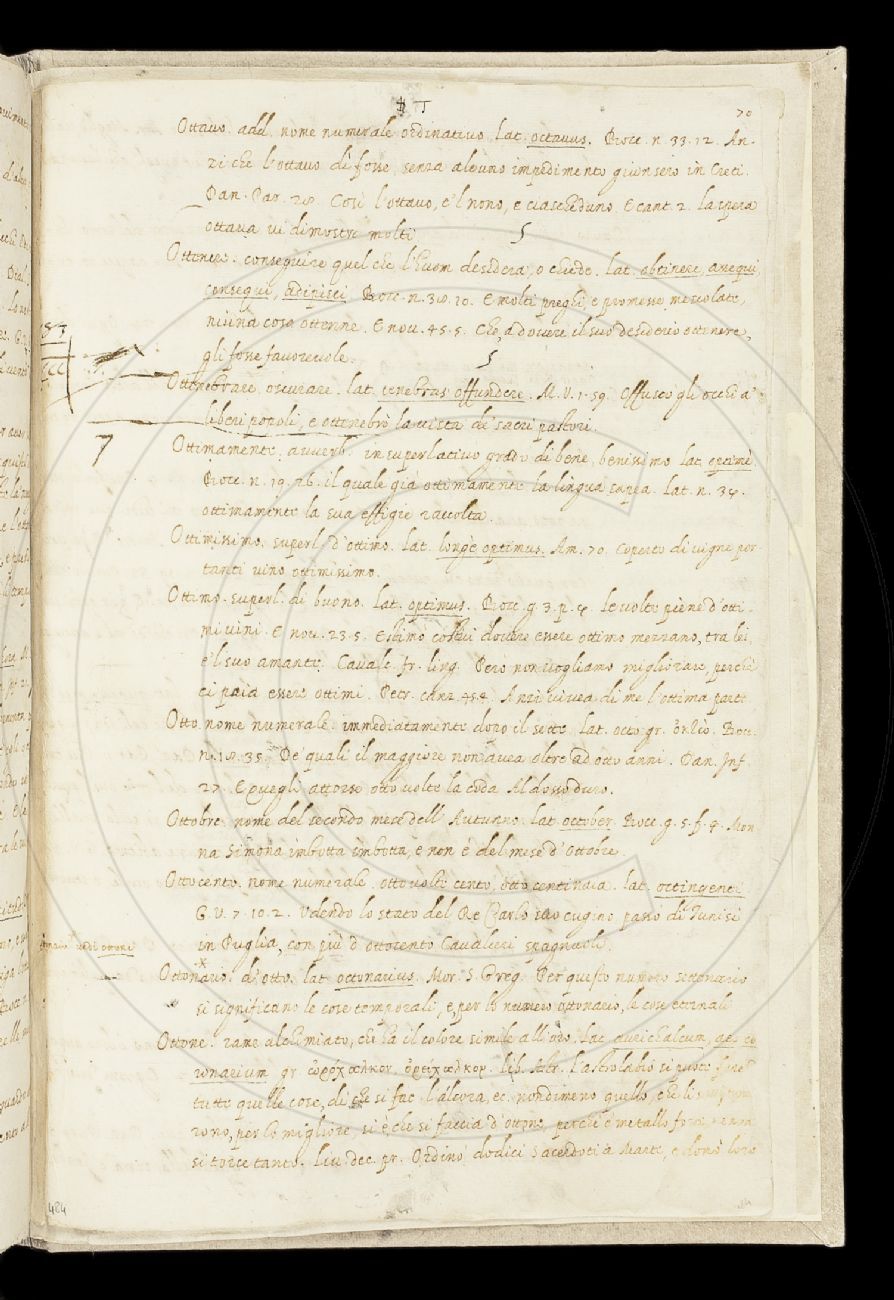 70
Ottavo. add. nome numerale ordinativo. Lat. octavus. Bocc. n. 33. 12. An-
zi che l'ottavo dì fosse, senza alcuno impedimento giunsero in Creti.
Dan. Par. 28. Così l'ottavo, e 'l nono, e ciascheduno. E cant. 2. La spera
ottava vi dimostra molti
Ottenere. conseguire quel che l'huom desidera, o chiede. lat. obtinere, assequi,
consequi, adipisci. Bocc. n. 30. 10. E molti preghi, e promesse mescolate,
niuna cosa ottenne. E nov. 45. 5. Che, a dovere il suo desiderio ottenere,
gli fosse favorevole.
Ottenebrare. oscurare. lat. tenebras offundere. M. V. 1. 59. Offuscò gli occhi a'
liberi popoli, e ottenebrò la vista de' sacri pastori.
7
Ottimamente. avverb. in superlativo grado di bene, benissimo. lat. optimè.
Bocc. n. 19. 26. il quale già ottimamente la lingua sapea. Lat. n. 34.
ottimamente la sua effigie raccolta.
Ottimissimo. superl. d'ottimo. Lat. longè optimus. Am. 70. Coperto di vigne por-
tanti vino ottimissimo.
Ottimo. superl. di buono. Lat. optimus. Bocc. g. 3. p. 4. le volte piene d'otti-
mi vini. E nov. 23. 5. Estimò costui dovere essere ottimo mezzano, tra lei,
e 'l suo amante. Cavalc. fr. ling. Però non vogliamo migliorare, perchè
ci paia essere ottimi. Petr. canz. 45. 4. Anzi vivea di me l'ottima parte
Otto. nome numerale. immediatamente dopo il sette. Lat. octo. gr. ὀκτὼ. Bocc.
n. 18. 35. De' quali il maggiore non avea oltre ad otto anni. Dan. Inf.
27. E quegli attorse otto volte la coda Al dosso duro.
Ottobre. nome del secondo mese dell' Autunno. lat. october. Bocc. g. 5. f. 4. Mon
na Simona imbotta imbotta, e non è del mese d'Ottobre
Ottocento. nome numerale. otto volte cento, otto centinaia. lat. octingenti.
G. V. 7. 10. 2. Udendo lo stato del Re Carlo suo cugino passò di Tunisi
in Puglia, con più d'ottocento Cavalieri spagnuoli.
vedi ottone
Ottonario. d'otto. lat. octonarius. Mor. S. Greg. Per questo numero settenario
si significano le cose temporali, e per lo numero ottonario, le cose etternali
Ottone. rame alchimiato, che ha il colore simile all'oro. Lat. aurichalcum, aes co
ronarium. gr. ὀρείχαλκον. lib. Astr. L'astrolabio si puote fare
tutte quelle cose, di che si fae l'alcora, ec. nondimeno quello, che
rono, per lo migliore, si è, che si faccia d'ottone, perchè è metallo forte,
si torce tanto. Liv. dec. pr. Ordinò dodici Sacerdoti a Marte, e donò loro
484